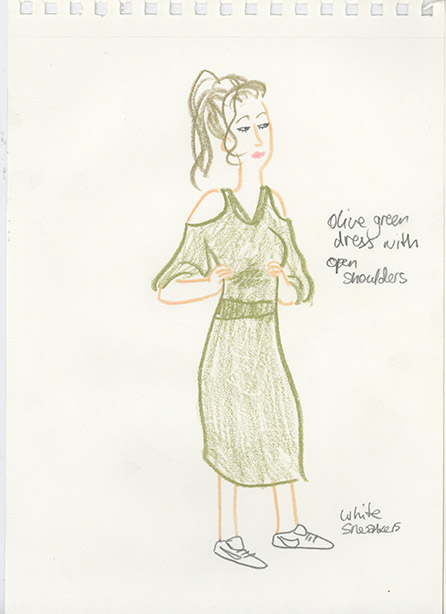 olive green
dress with
open
shoulders
white
sneakers